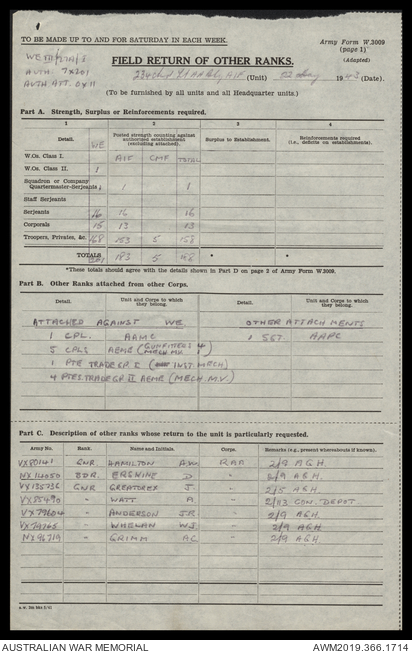 TO BE MADE UP TO AND FOR SATURDAY IN EACH WEEK.
Army Form W.3009
(page 1)
(Adapted)
AUTH. 7X201
AUTH. ATT. 0X11
FIELD RETURN OF OTHER RANKS.
(Unit) 1943 (Date).
(To be furnished by all units and all Headquarter units.)
Part A. Strength, Surplus or Reinforcements required.
1 2 3 4
Detail. WE Posted strength counting against authorised establishment (excluding attached). Surplus to Establishment. Reinforcements required (i.e., deficits on establishments).
W.Os. Class I. AIF CMF TOTAL
W.Os. Class II. 1
Squadron or Company Quartermaster-Serjeants 1 1 1
Staff Serjeants
Serjeants 16 16 16
Corporals 15 13 13
Troopers, Privates, &c. 168 153 5 158
TOTALS 183 5 * *
*These totals should agree with the details shown in Part D on page 2 of Army Form W.3009.
Part B. Other Ranks attached from other Corps.
Detail. Unit and Corps to which they belong. Detail. Unit and Corps to which they belong.
ATTACHED AGAINST WE OTHER ATTACHMENTS
1 CPL. AAMC 1 SGT AAPC
5 CPLS AEME (GUNFITTERS 4
(MECH. M.V. 1)
1 PTE TRADE GP. I INST MECH)
4 PTES TRADE GP. II AEME (MECH. M.V.)
Part C. Description of other ranks whose return to the unit is particularly requested.
Army No. Rank. Name and Initials. Corps. Remarks (e.g., present whereabouts if known).
VX80141 GNR HAMILTON A.W. RAA 2/9 AGH
NX114050 BDR ERSKINE D " 2/9 AGH
VX135736 GNR GREATOREX J. " 2/5 AGH
VX85490 " WATT A " 2/113 CON. DEPOT
VX79604 " ANDERSON J.R. " 2/9 AGH
" WHELAN W.J. " 2/9 AGH
NX96719 " GRIMM A.C. " 2/9 AGH
AUSTRALIAN WAR MEMORIAL
AWM2019.366.1714